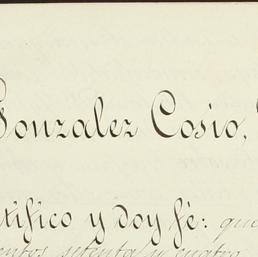 Gonzalez Cosio,
tifico y doy fé: que
entos setenta y cuatro